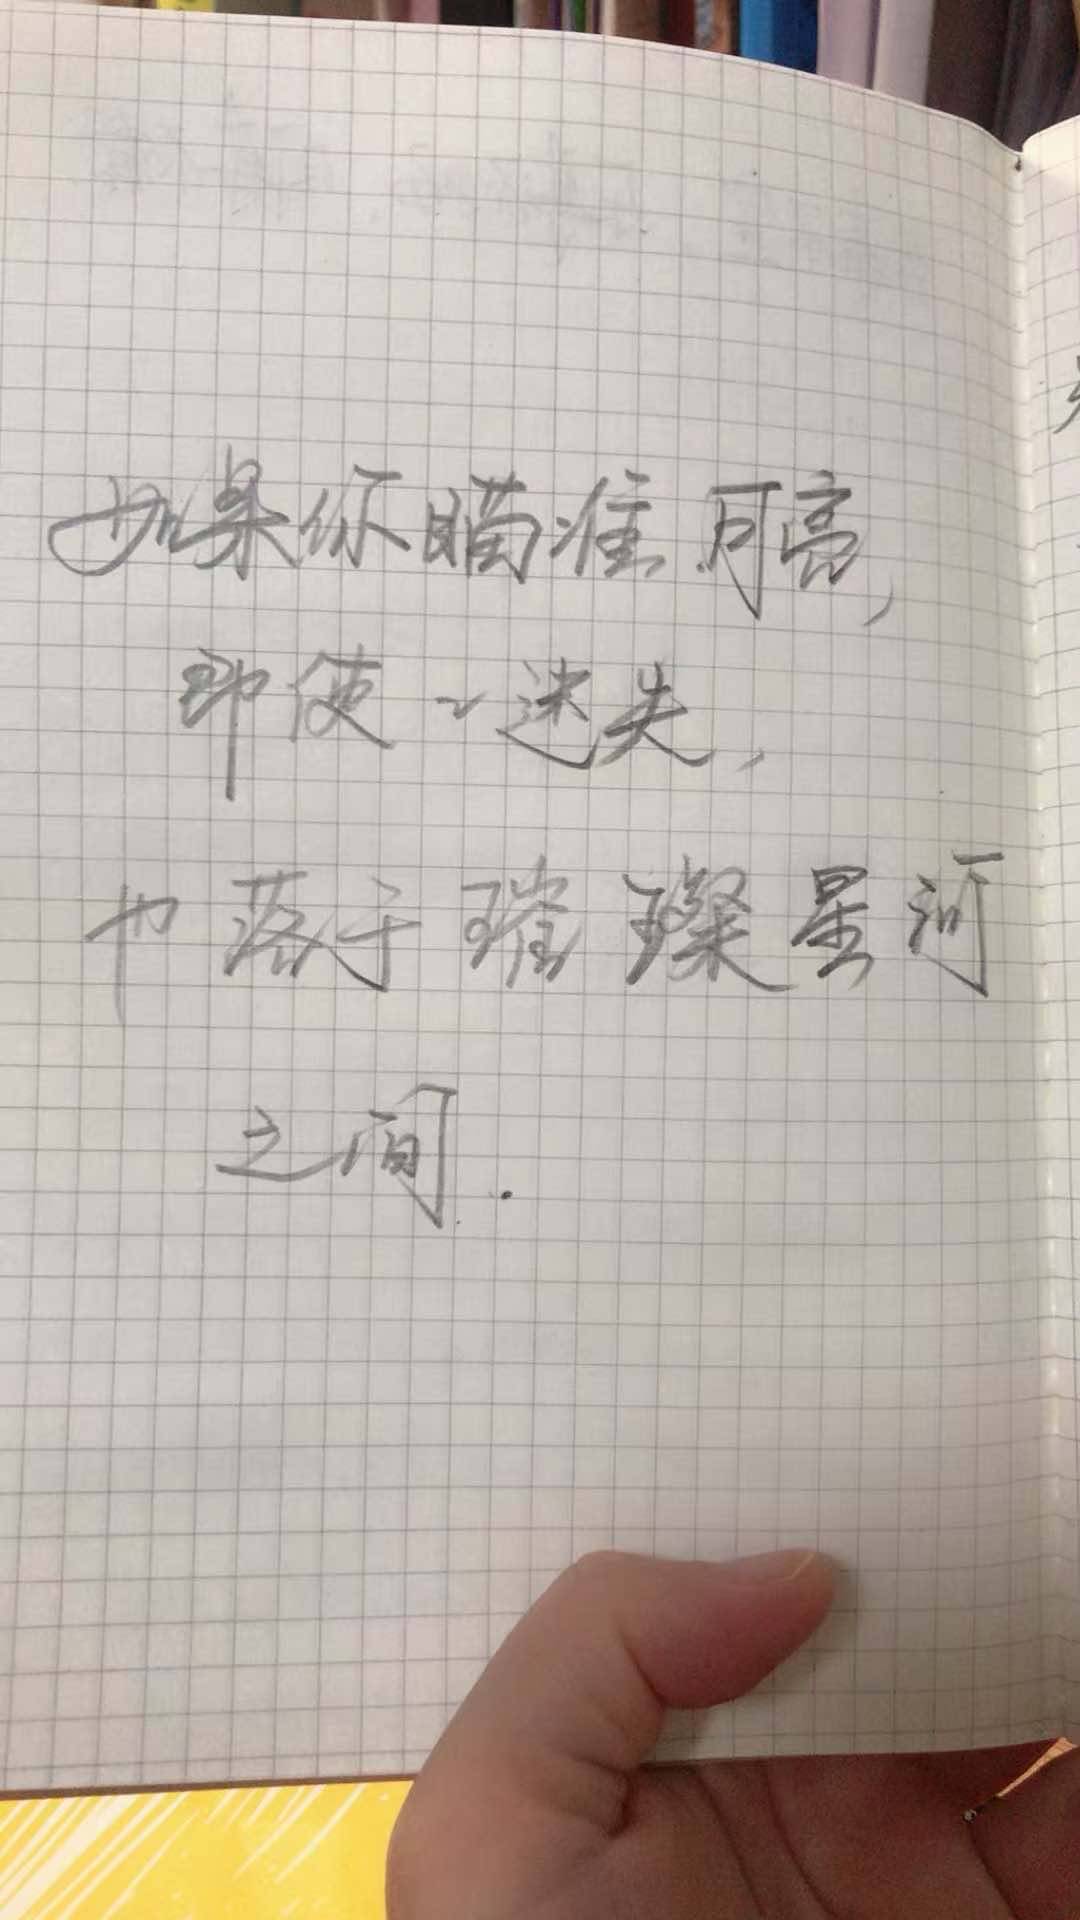 如果你瞄准月亮,
即使迷失,
也落于璀璨星河
之间.